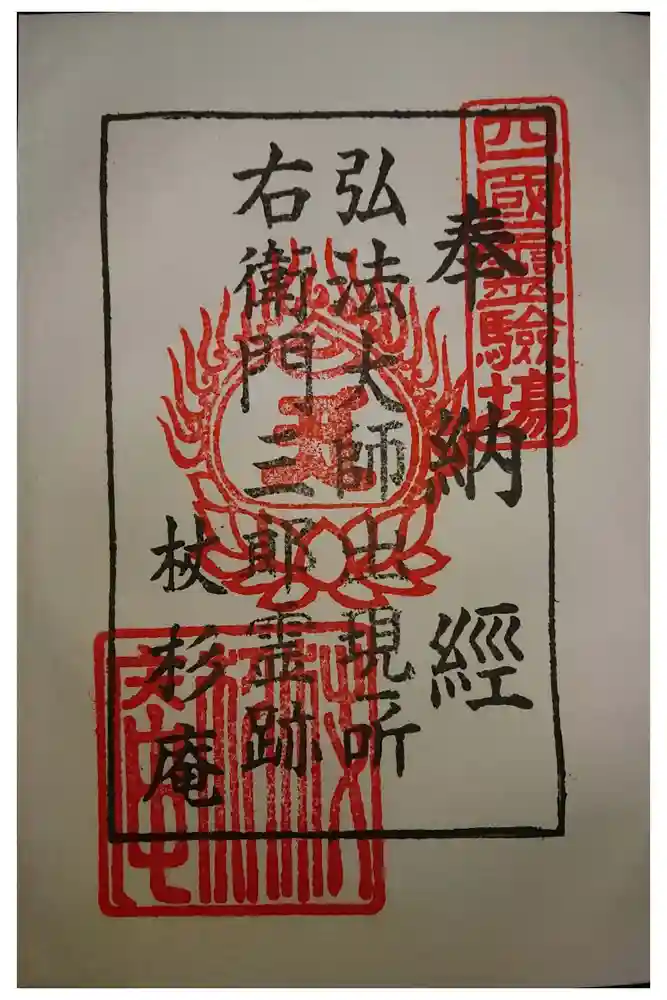 四國靈驗場
奉納經
弘法大師出現所
右衛門三郎霊跡
杖杉庵